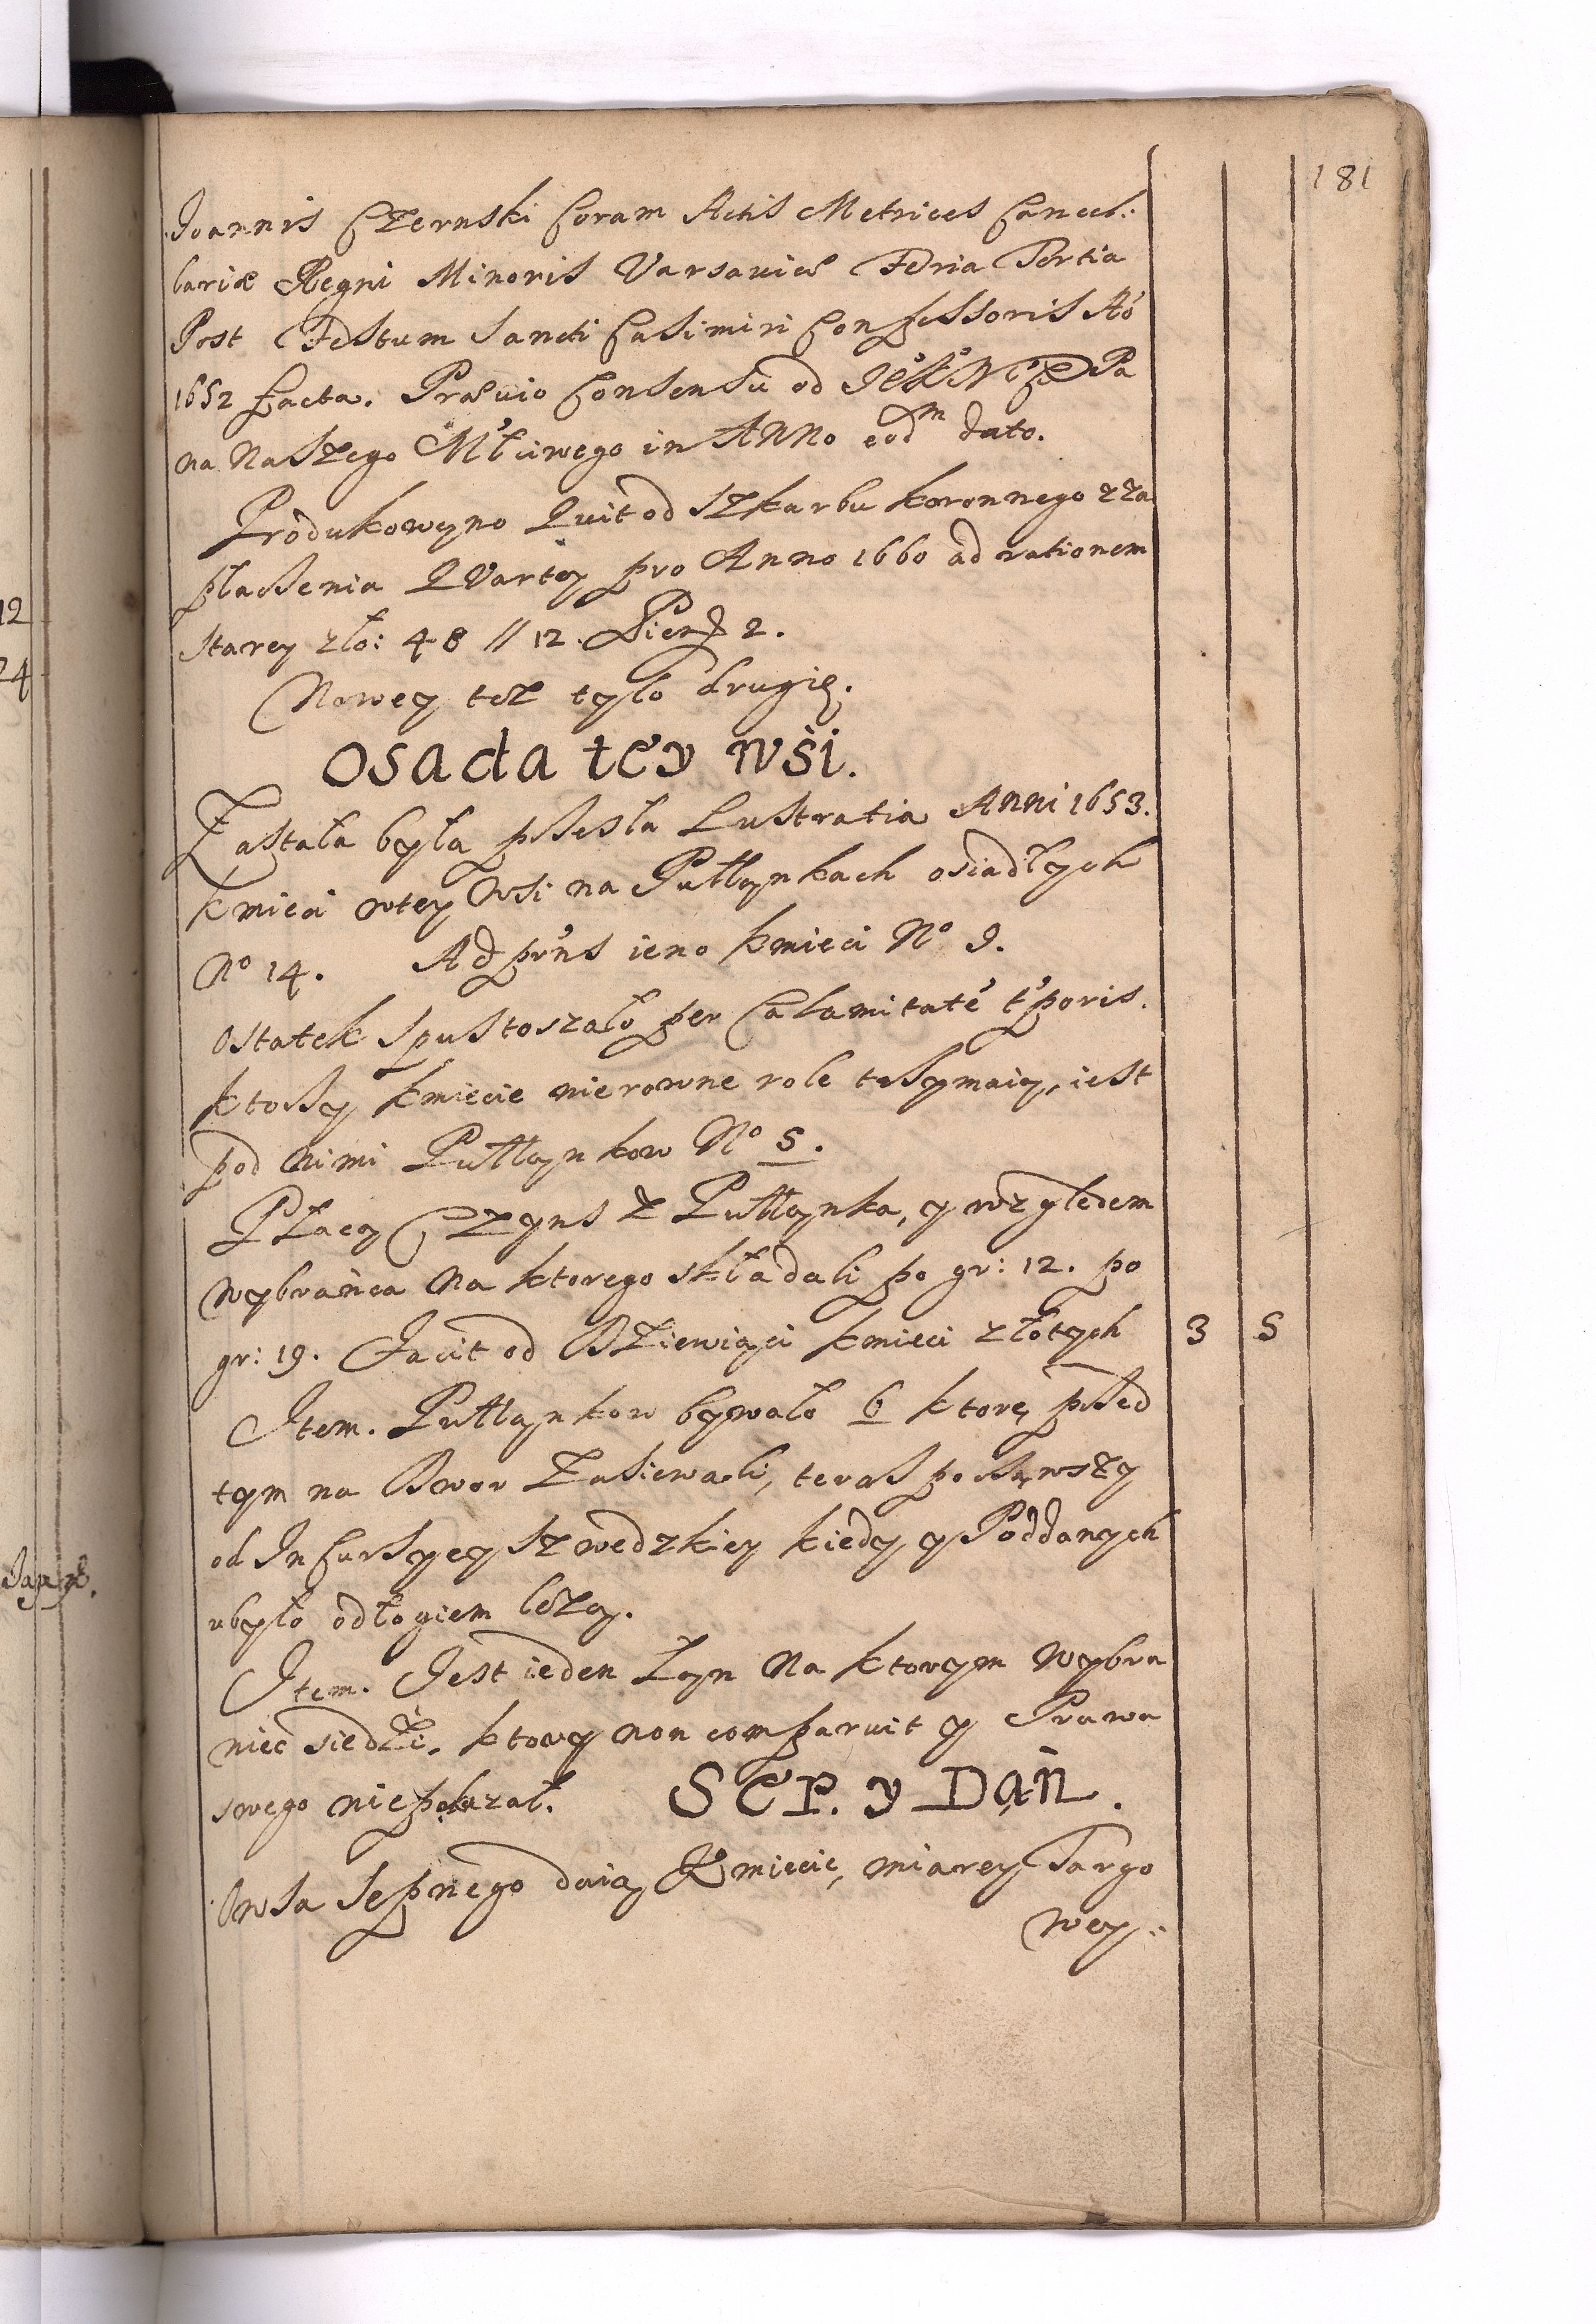 181
Joannis Czernski Coram Actis Metrices Cancel:
lariæ Regni Minoris Varsaviæ Feria Tertia
Post Festum Sancti Casimiri Confessoris Aõ
1652 facta. Prævio Consensu od Pa
na Naszego Młciwego in Anno eodm dato.
Produkowano Quit od Szkarbu koronnego zza
płacenia Qvarty pro Anno 1660 ad rationem
starey zło: 48 // 12. Pien. 2.
Nowey tesz tylo drugie.
Osada tey wsi.
Zastała była przeszła Lustratia Anni 1653.
Kmieci wtey Wsi na Pułłankach osiadłych
No 14. Ad prns ieno kmieci No 9.
Ostatek spustoszało per Calamitate tporis.
ktorzy kmiecie nierowne role trzymaią, iest
pod nimi Pułłankow No 5.
Płacą Czyns z Pułłanka, y względem
Wybrańca na ktorego składali po gr: 12. po
gr: 19. Facit od Dziewiąci kmieci złotych 3 5
Item. Pułłankow bywało 6 ktore przed
tym na Dwor Zasiewali, teraz począwszy
od Incursyey Szwedzkiey kiedy y Poddanych
ubyło odłogiem leżą.
Item. Jest ieden Łan na ktorym Wybra
niec siedzi. ktory non comparuit y Prawa
swego niepokazał. Sep. y Dań.
Owsa Sepnego daią Kmiecie, miarey Targo
wey:
12
24